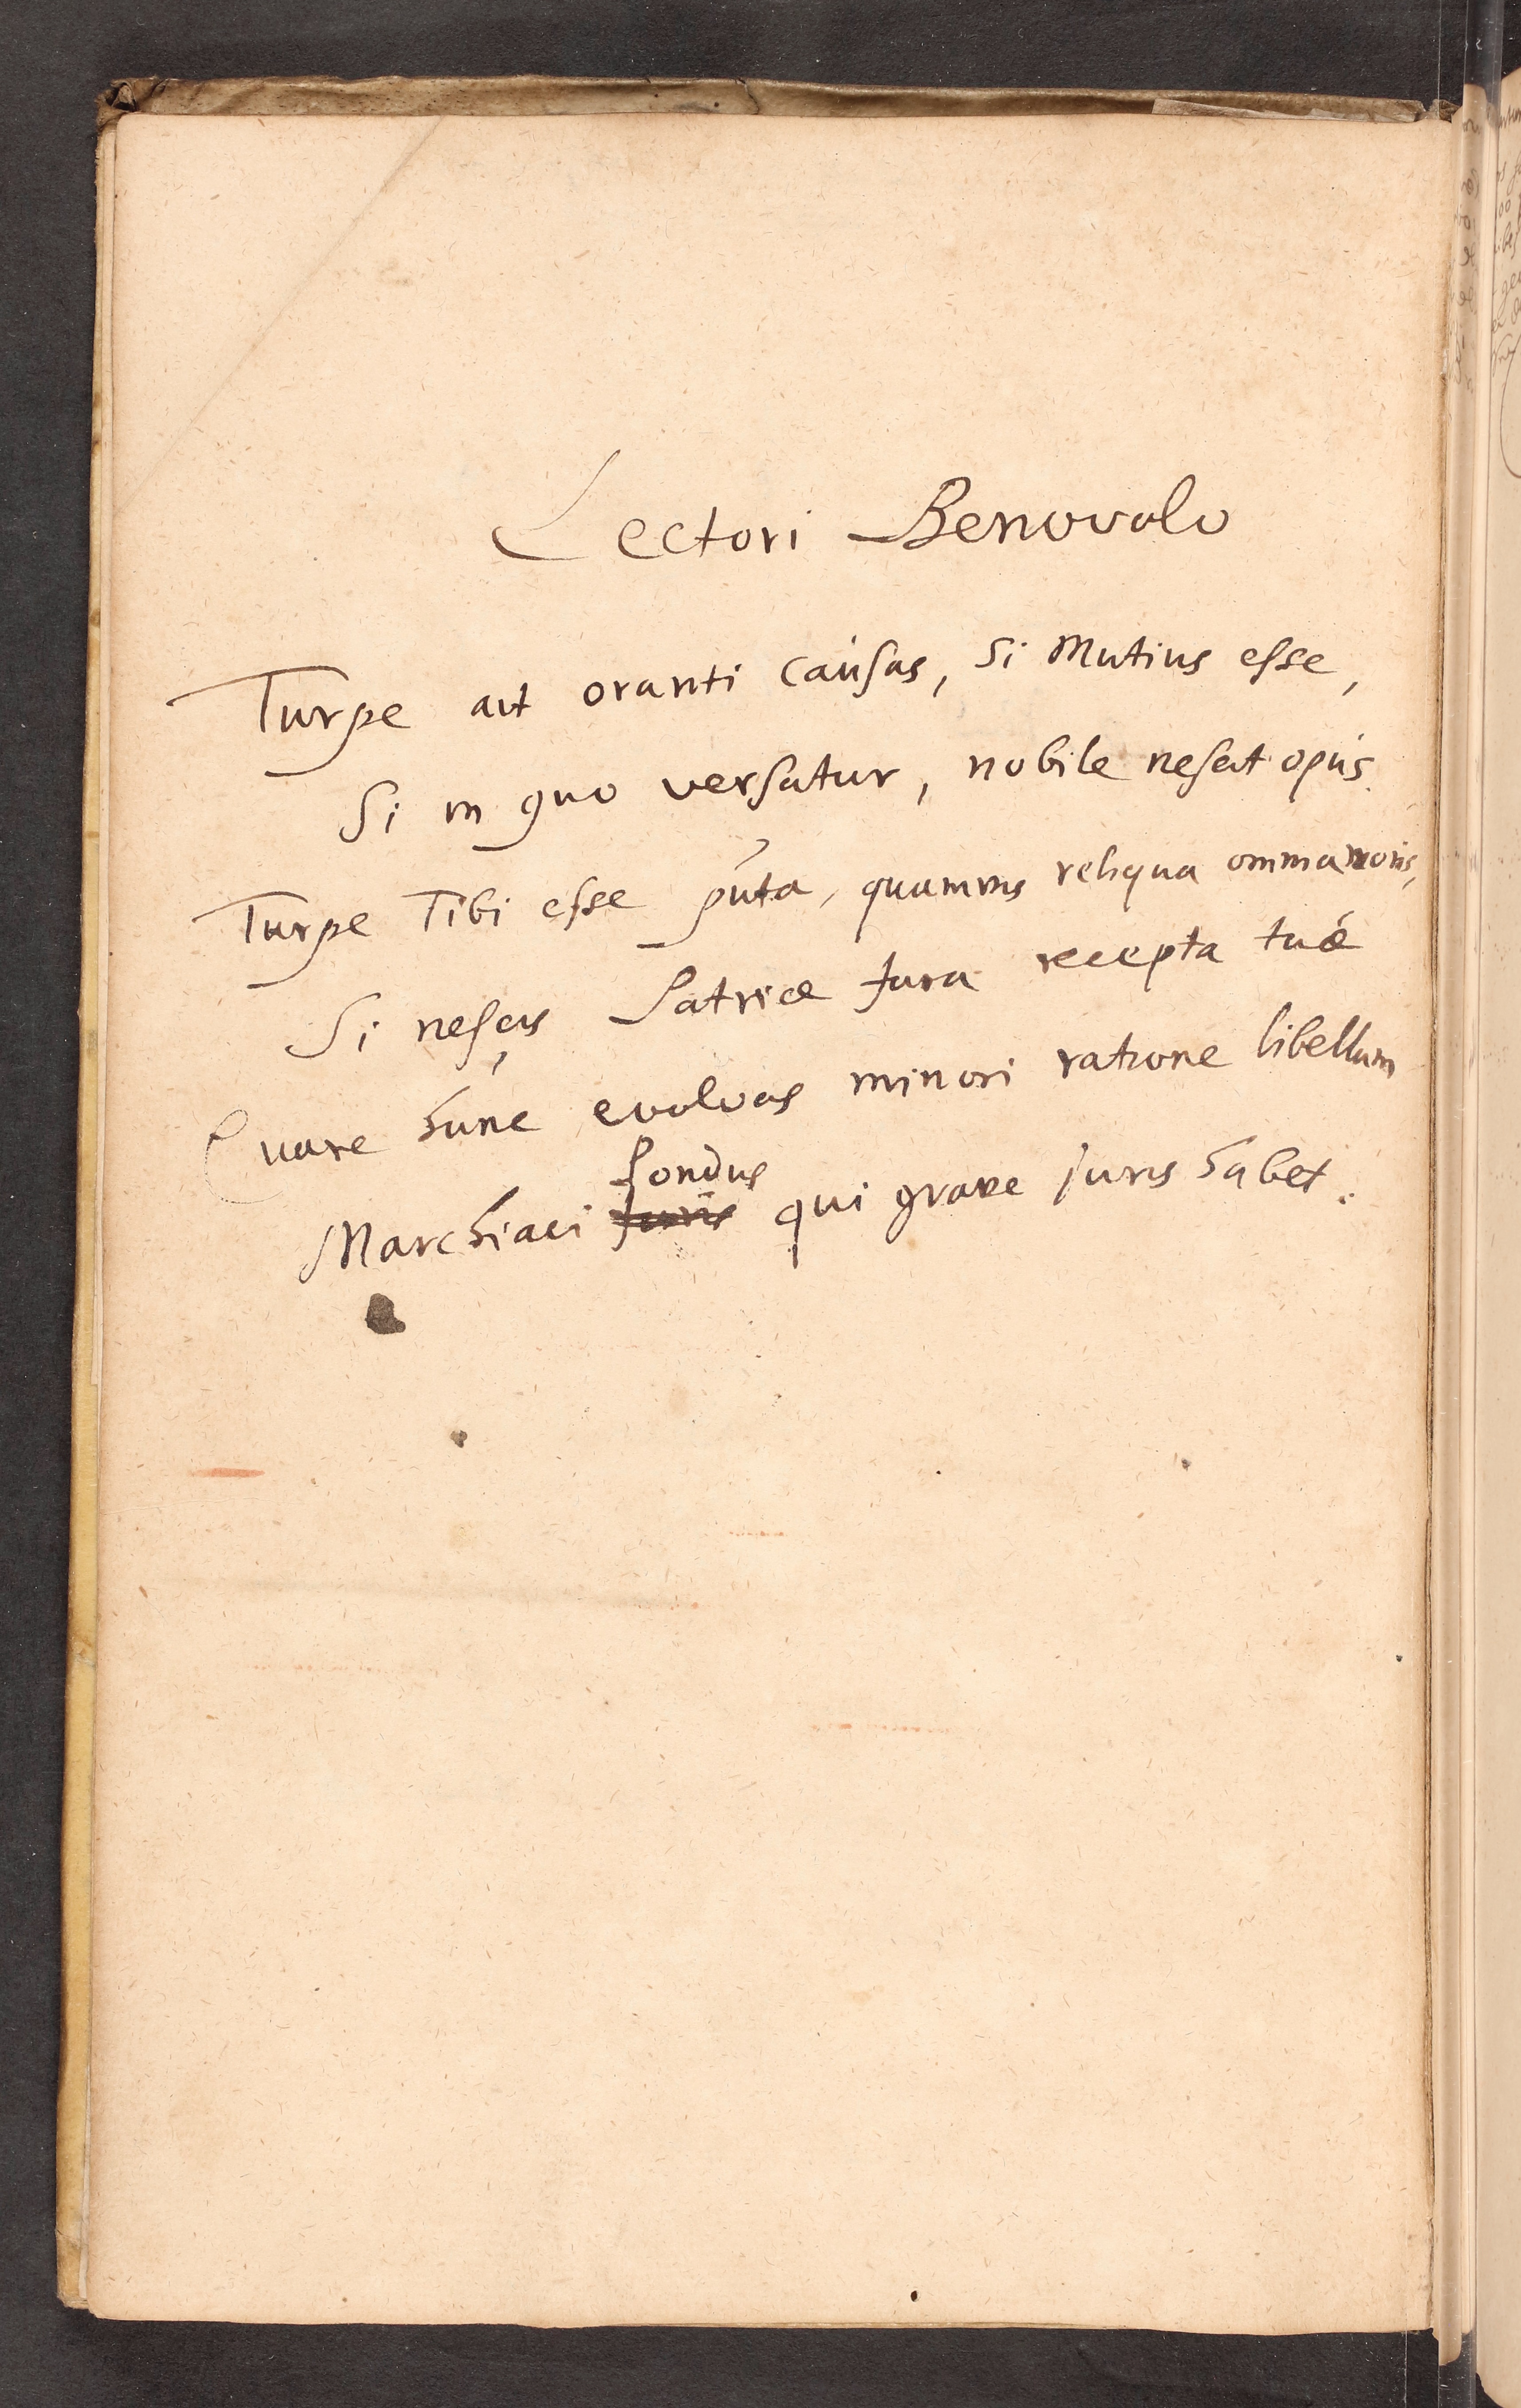 Lectori Benevolo
Turpe ait oranti causas, si Mutius esse,
Si in quo versatur, nobile nescit opus.
Turpe Tibi esse puta, quamvis reliqua omnia noris,
Si nescis Patriæ Jura recepta tuæ
Quare hunc evolvas minori ratione libellum
Pondus
Marchiaci Juris qui grave juris habet.